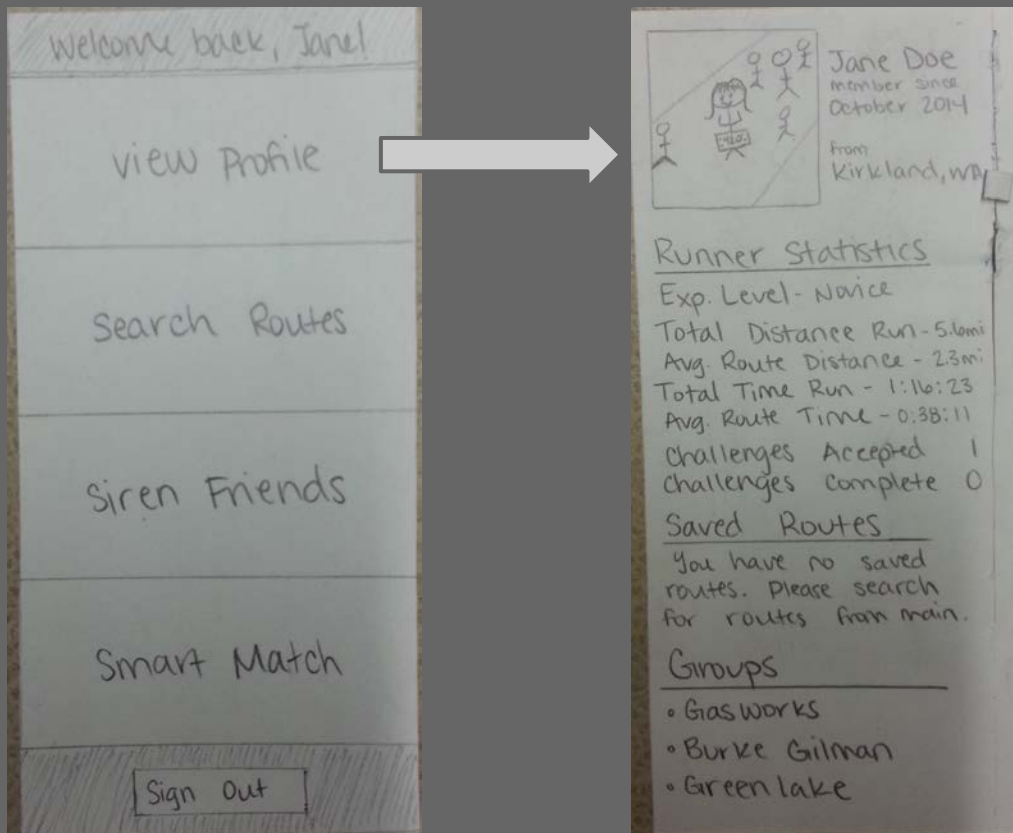 Welcome back, Jane!
View Profile
Search Routes
Siren Friends
Smart Match
Sign Out
Jane Doe
member since
October 2014
from
Kirkland, WA
Runner Statistics
Exp. Level - Novice
Total Distance Run - 5.6mi
Avg. Route Distance - 2.3mi
Total Time Run - 1:16:23
Avg. Route Time - 0:38:11
Challenges Accepted 1
Challenges Complete 0
Saved Routes
You have no saved
routes. Please search
for routes from main.
Groups
• Gasworks
• Burke Gilman
• Greenlake